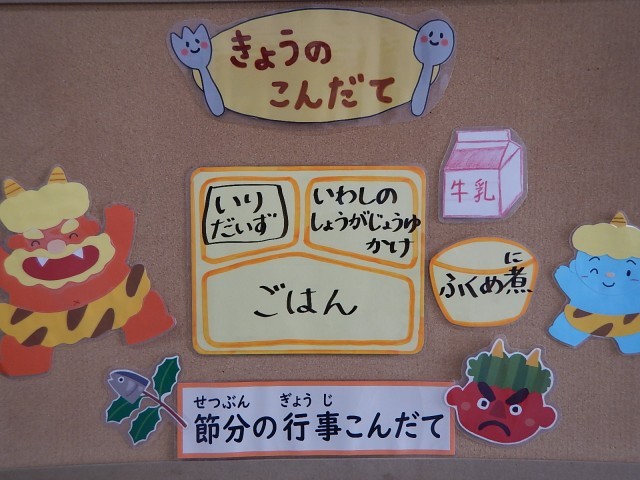 きょうの
こんだて
牛乳
いり
だいず
いわしの
しょうがじょうゆ
かけ
に
ふくめ煮
ごはん
せつぶん ぎょうじ
節分の行事こんだて